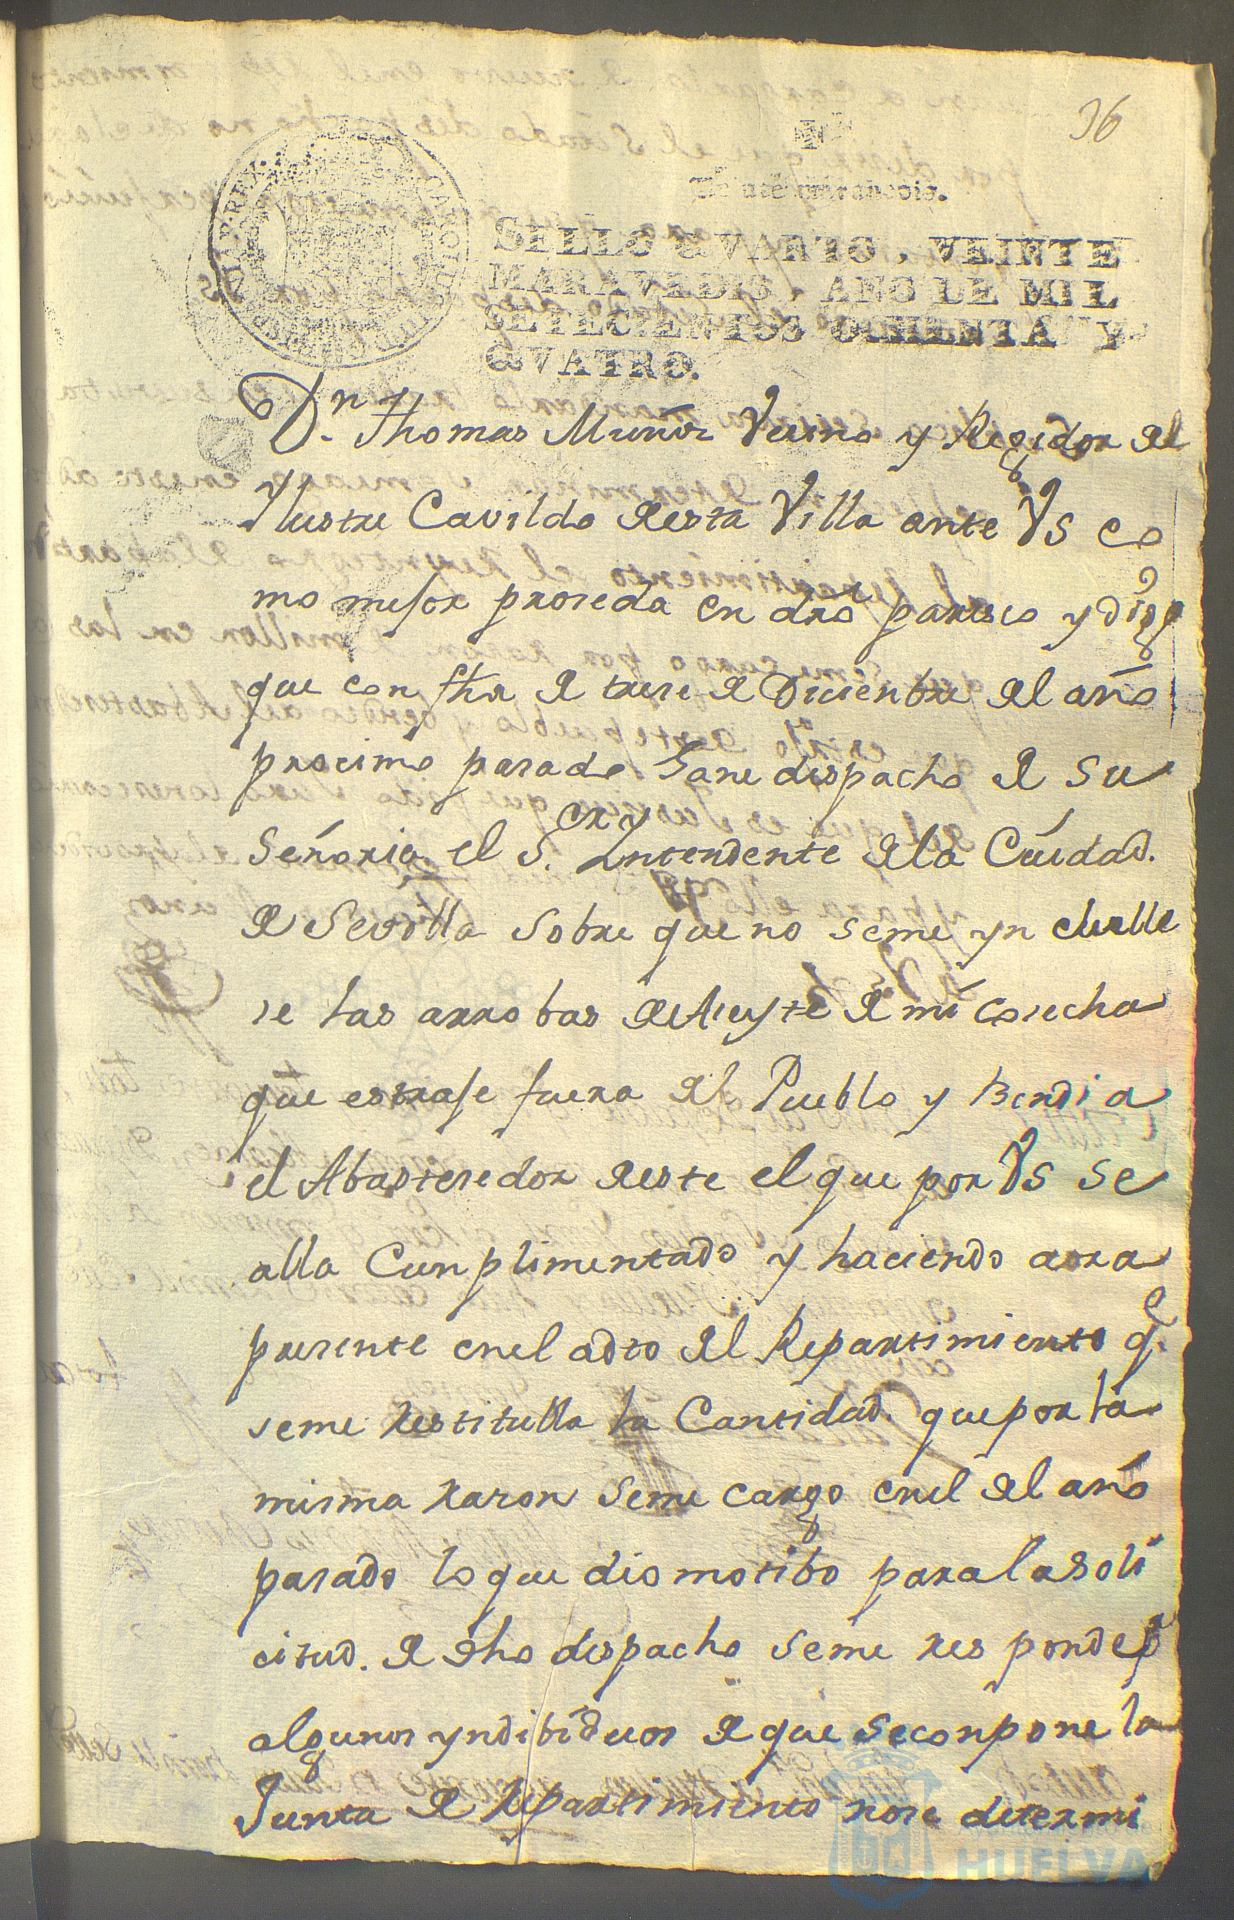 36
Veinte maravedis.
SELLO QVARTO, VEINTE
MARAVEDIS, AÑO DE MIL
SETECIENTOS OCHENTA Y
QVATRO.
CAROLUS
D.n Thomas Muñiz Vecino y Regidor del
Yllustre Cavildo desta Villa ante VS co
mo mejor proceda en dro paresco y digo
que con fha de trece de Diciembre del año
procimo pasado Gane despacho de su
Señoria el S.or Yntendente dela Cíudad.
de Sevilla sobre que no seme yn clulle
se las arrobas de Aseyte de mi Cosecha
que estraje fuera del Pueblo y Bendi a
el Abastesedor deste el que por VS se
alla Cunplimentado y haciendo aora
presente enel acto del Repartimiento q.e
seme restitulla la Cantidad. que por la
misma rason seme cargo enel del año
pasado lo que dio motibo para la soli
citud. de dho despacho seme res ponde p.r
algunos yndibiduos de que seconpone la
Junta de Repartimiento nose determi
HUELVA